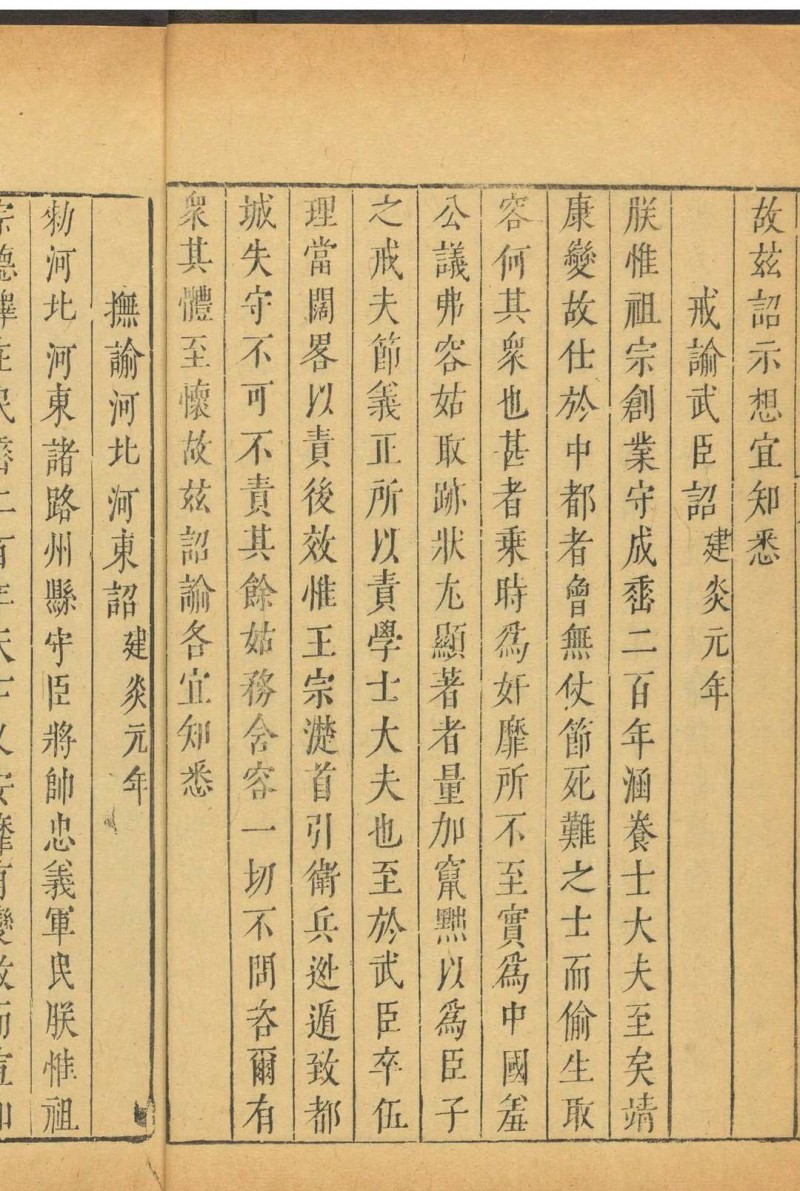 故茲詔示想宜知悉
戒諭武臣詔建炎元年
朕惟祖宗創業守成垂二百年涵養士大夫至矣靖
康變故仕於中都者曾無仗節死難之士而偷生取
容何其衆也甚者乗時爲奸靡所不至實爲中國羞
公議弗容姑取跡狀尤顯著者量加竄黜以爲臣子
之戒夫節義正所以責學士大夫也至於武臣卒伍
理當闊畧以責後效惟王宗濋首引衛兵逃遁致都
城失守不可不責其餘姑務含容一切不問咨爾有
衆其體至懷故茲詔諭各宜知悉
撫諭河北河東詔建炎元年
勑河北河東諸路州縣守臣將帥忠義軍民朕惟祖
宗德澤在民垂二百年天下乂安靡有變故而宣和